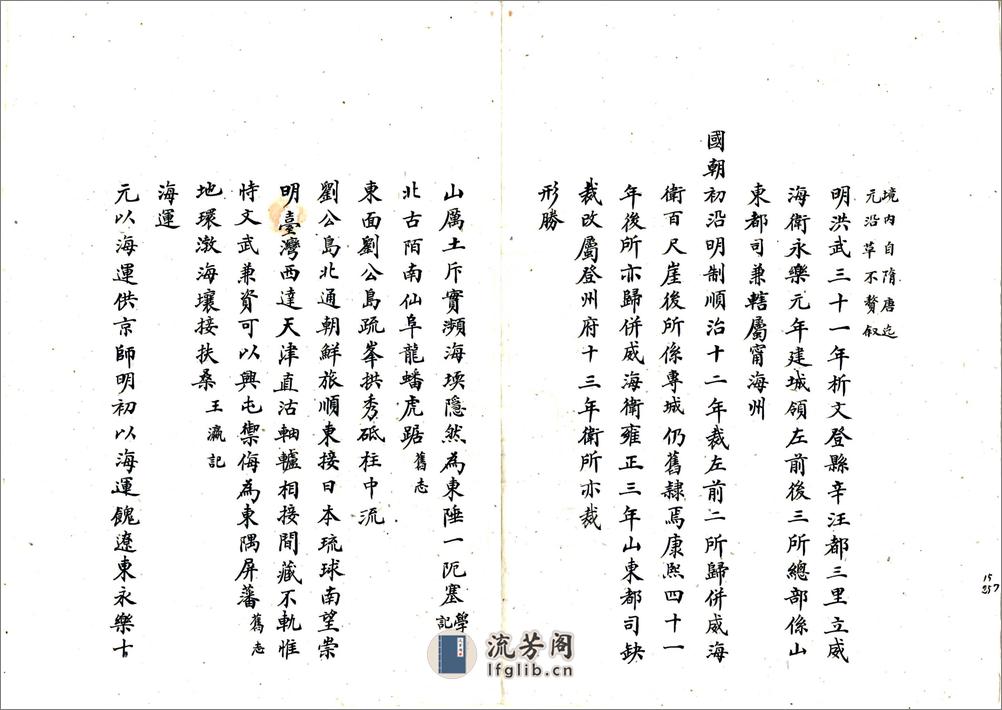 境内自隋唐迄
元沿革不贅叙
明洪武三十一年析文登縣辛汪都三里立威
海衛永樂元年建城領左前後三所總部係山
東都司兼轄屬甯海州
國朝初沿明制順治十二年裁左前二所歸併威海
衛百尺崖後所係專城仍舊隸焉康熙四十一
年後所亦歸併威海衛雍正三年山東都司缺
裁改屬登州府十三年衛所亦裁
形勝
山厲土斥實瀕海堧隱然為東陲一阨塞學記
北古陌南仙阜龍蟠虎踞舊志
東面劉公島疏峯拱秀砥柱中流
劉公島北通朝鮮旅順東接日本琉球南望崇
明臺灣西達天津直沽軸轤相接間藏不軌惟
恃文武兼資可以興屯禦侮為東隅屏藩舊志
地環澂海壤接扶桑王瀛記
海運
元以海運供京師明初以海運餽遼東永樂十
15
257
流芳阁
lfglib.cn